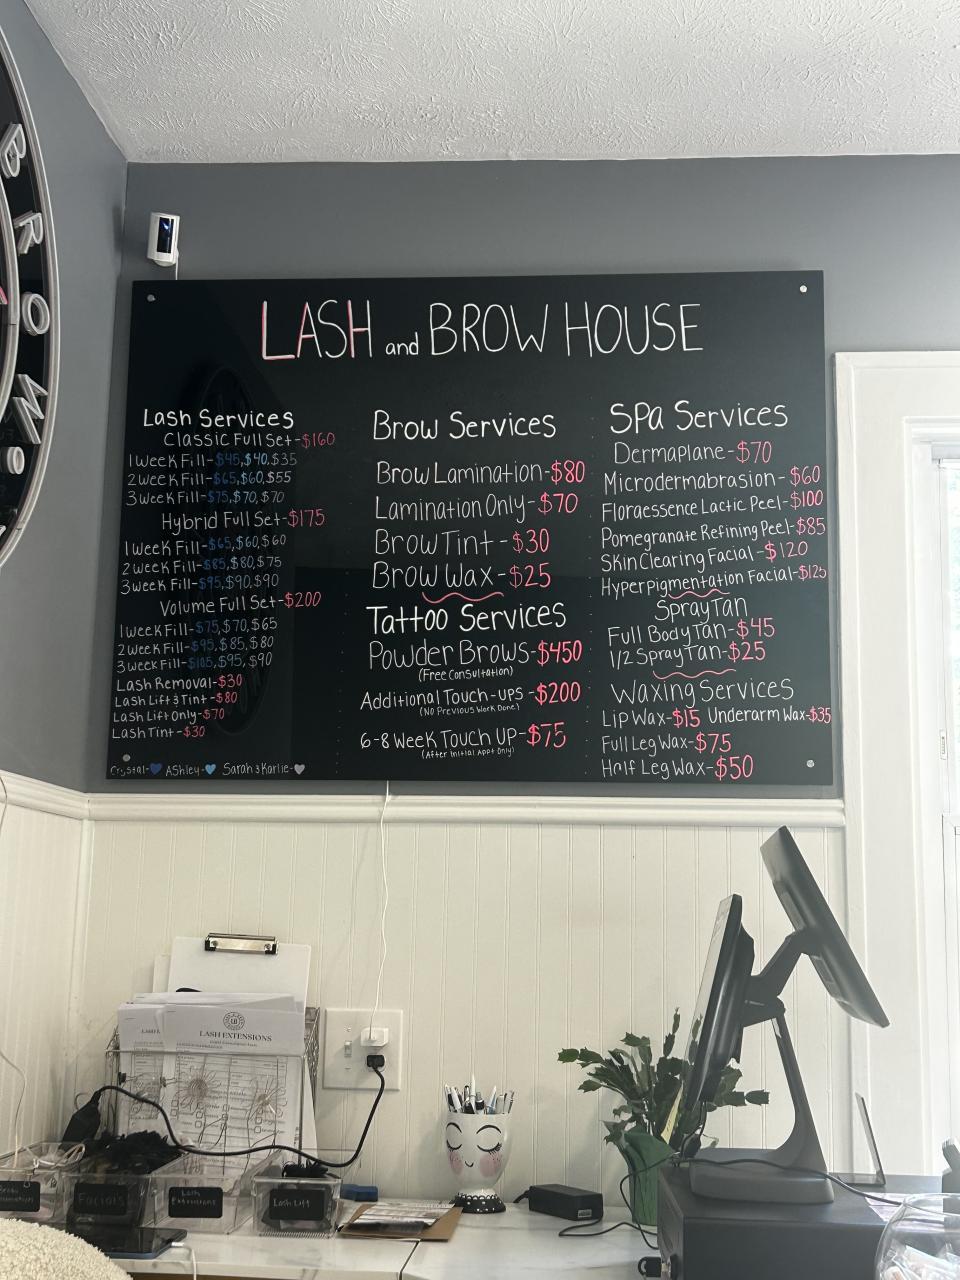 BROW
LASH and BROW HOUSE
Lash Services
Classic Full Set-$160
1 Week Fill-$45,$40,$35
2 Week Fill-$65,$60,$55
3 Week Fill-$75,$70,$70
Hybrid Full Set-$175
1 Week Fill-$65,$60,$60
2 Week Fill-$85,$80,$75
3 Week Fill-$95,$90,$90
Volume Full Set-$200
1 Week Fill-$75,$70,$65
2 Week Fill-$95,$85,$80
3 Week Fill-$105,$95,$90
Lash Removal-$30
Lash Lift & Tint-$80
Lash Lift Only-$70
Lash Tint-$30
Crystal-💙 Ashley-🩵 Sarah & Karlie-🤍
Brow Services
Brow Lamination-$80
Lamination Only-$70
Brow Tint-$30
Brow Wax-$25
Tattoo Services
Powder Brows-$450
(Free Consultation)
Additional Touch-ups-$200
(No Previous Work Done)
6-8 Week Touch Up-$75
(After Initial Appt Only)
Spa Services
Dermaplane-$70
Microdermabrasion-$60
Floraessence Lactic Peel-$100
Pomegranate Refining Peel-$85
Skin Clearing Facial-$120
Hyperpigmentation Facial-$125
Spray Tan
Full Body Tan-$45
1/2 Spray Tan-$25
Waxing Services
Lip Wax-$15 Underarm Wax-$35
Full Leg Wax-$75
Half Leg Wax-$50
LASH EXTENSIONS
Facials
Lash
Extensions
Lash Lift